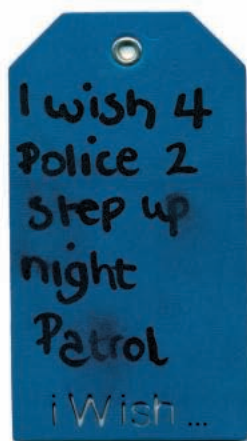 I wish 4
Police 2
step up
night
Patrol
iWish...